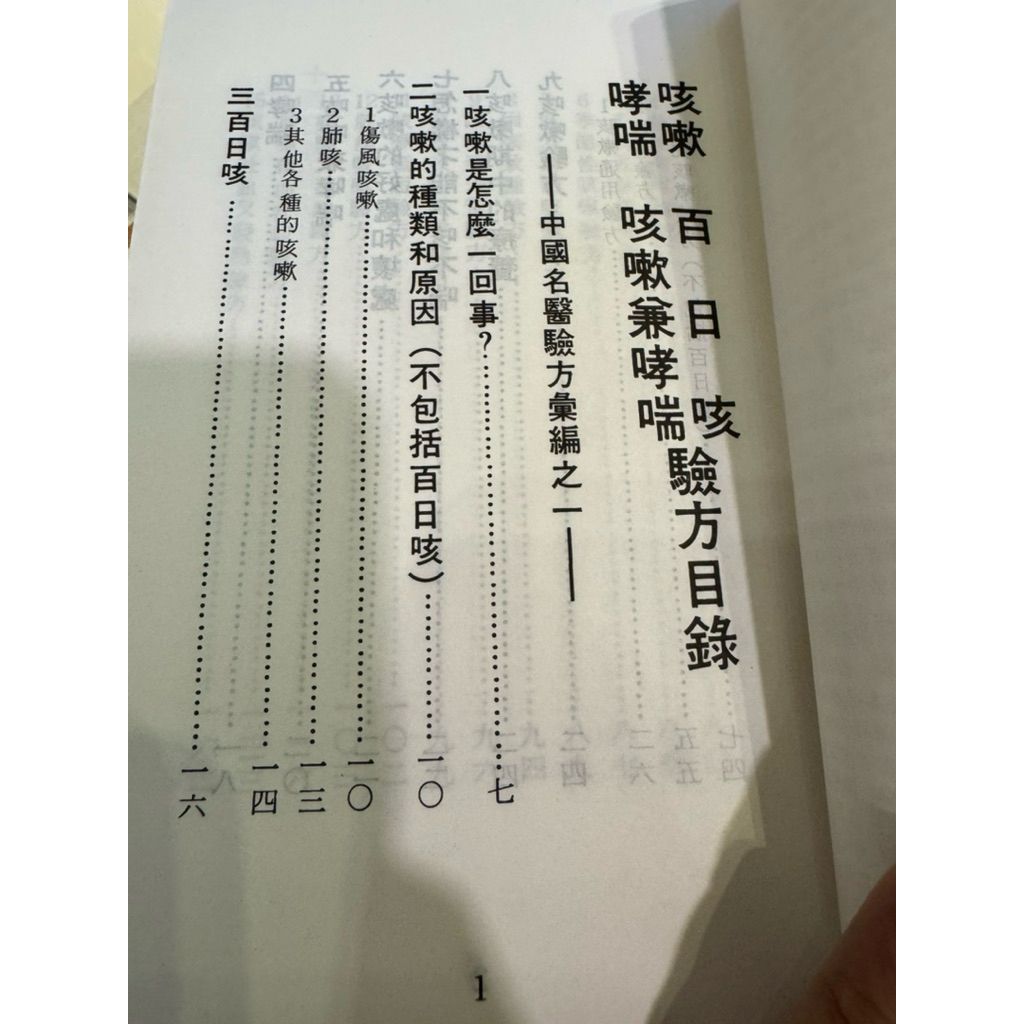 咳嗽 百日咳
哮喘 咳嗽兼哮喘驗方目錄
——中國名醫驗方彙編之一——
一咳嗽是怎麼一回事?……七
二咳嗽的種類和原因(不包括百日咳)……一〇
1傷風咳嗽……一〇
2肺咳……一三
3其他各種的咳嗽……一四
三百日咳……一六
1